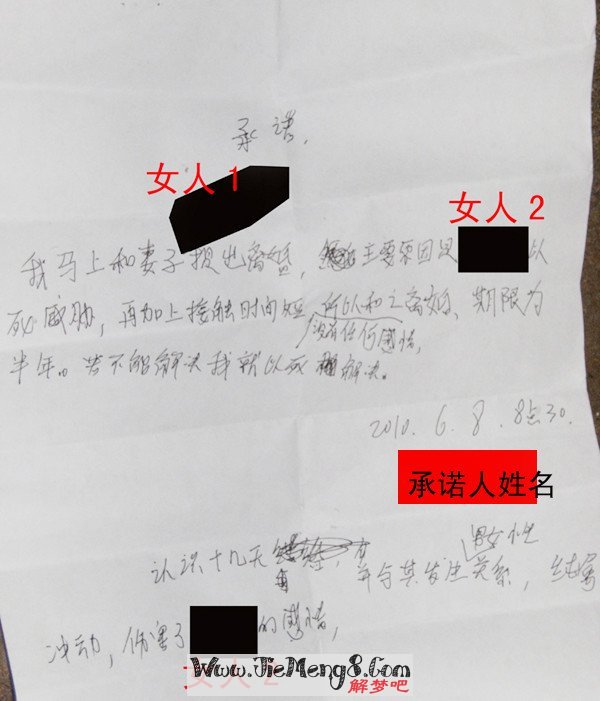 承诺,
女人1
女人2
我马上和妻子提出离婚, 主要原因是 以
死威胁,再加上接触时间短,所以和之离婚、期限为
没有任何感情,
半年。若不能解决我就以死 解决。
2010.6.8.8点30.
承诺人姓名
男女性
认识十几天 , 并与其发生关系, 纯属
冲动, 伤害了 的感情,
女人2
Www.JieMeng8.Com
解梦吧